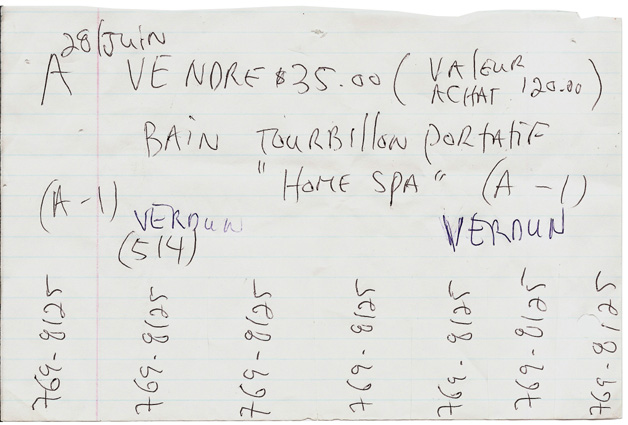 28/JUIN
A VENDRE $35.00 (VALEUR ACHAT 120.00)
BAIN TOURBILLON PORTATIF
"HOME SPA" (A-1)
(A-1) VERDUN VERDUN
(514)
769-8125 769-8125 769-8125 769-8125 769-8125 769-8125 769-8125